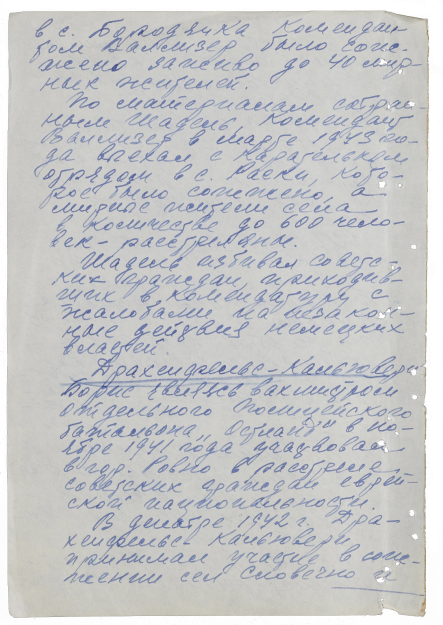 в с. Бородянка Комендан-
том Валлизер было сож-
жено заживо до 40 мир-
ных жителей.
По материалам собран-
ным Шадель, Комендант
Валлизер в марте 1943 го-
да выехал с Карательным
отрядом в с. Раски, кото-
рое было сожжено, а
мирные жители села
в количестве до 600 чело-
век - расстреляны.
Шадель избивал советс-
ких граждан, приходив-
ших в комендатуру с
жалобами на незакон-
ные действия немецких
властей.
Драхенфельс-Кальювери
Борис являясь вахмистром
отдельного Полицейского
батальона „Остланд" в но-
ябре 1941 года участвовал
в гор. Ровно в расстреле
советских граждан еврей-
ской национальности.
В декабре 1942 г. Дра-
хенфельс-Кальювери
принимал участие в сож-
жении сел Словечно и